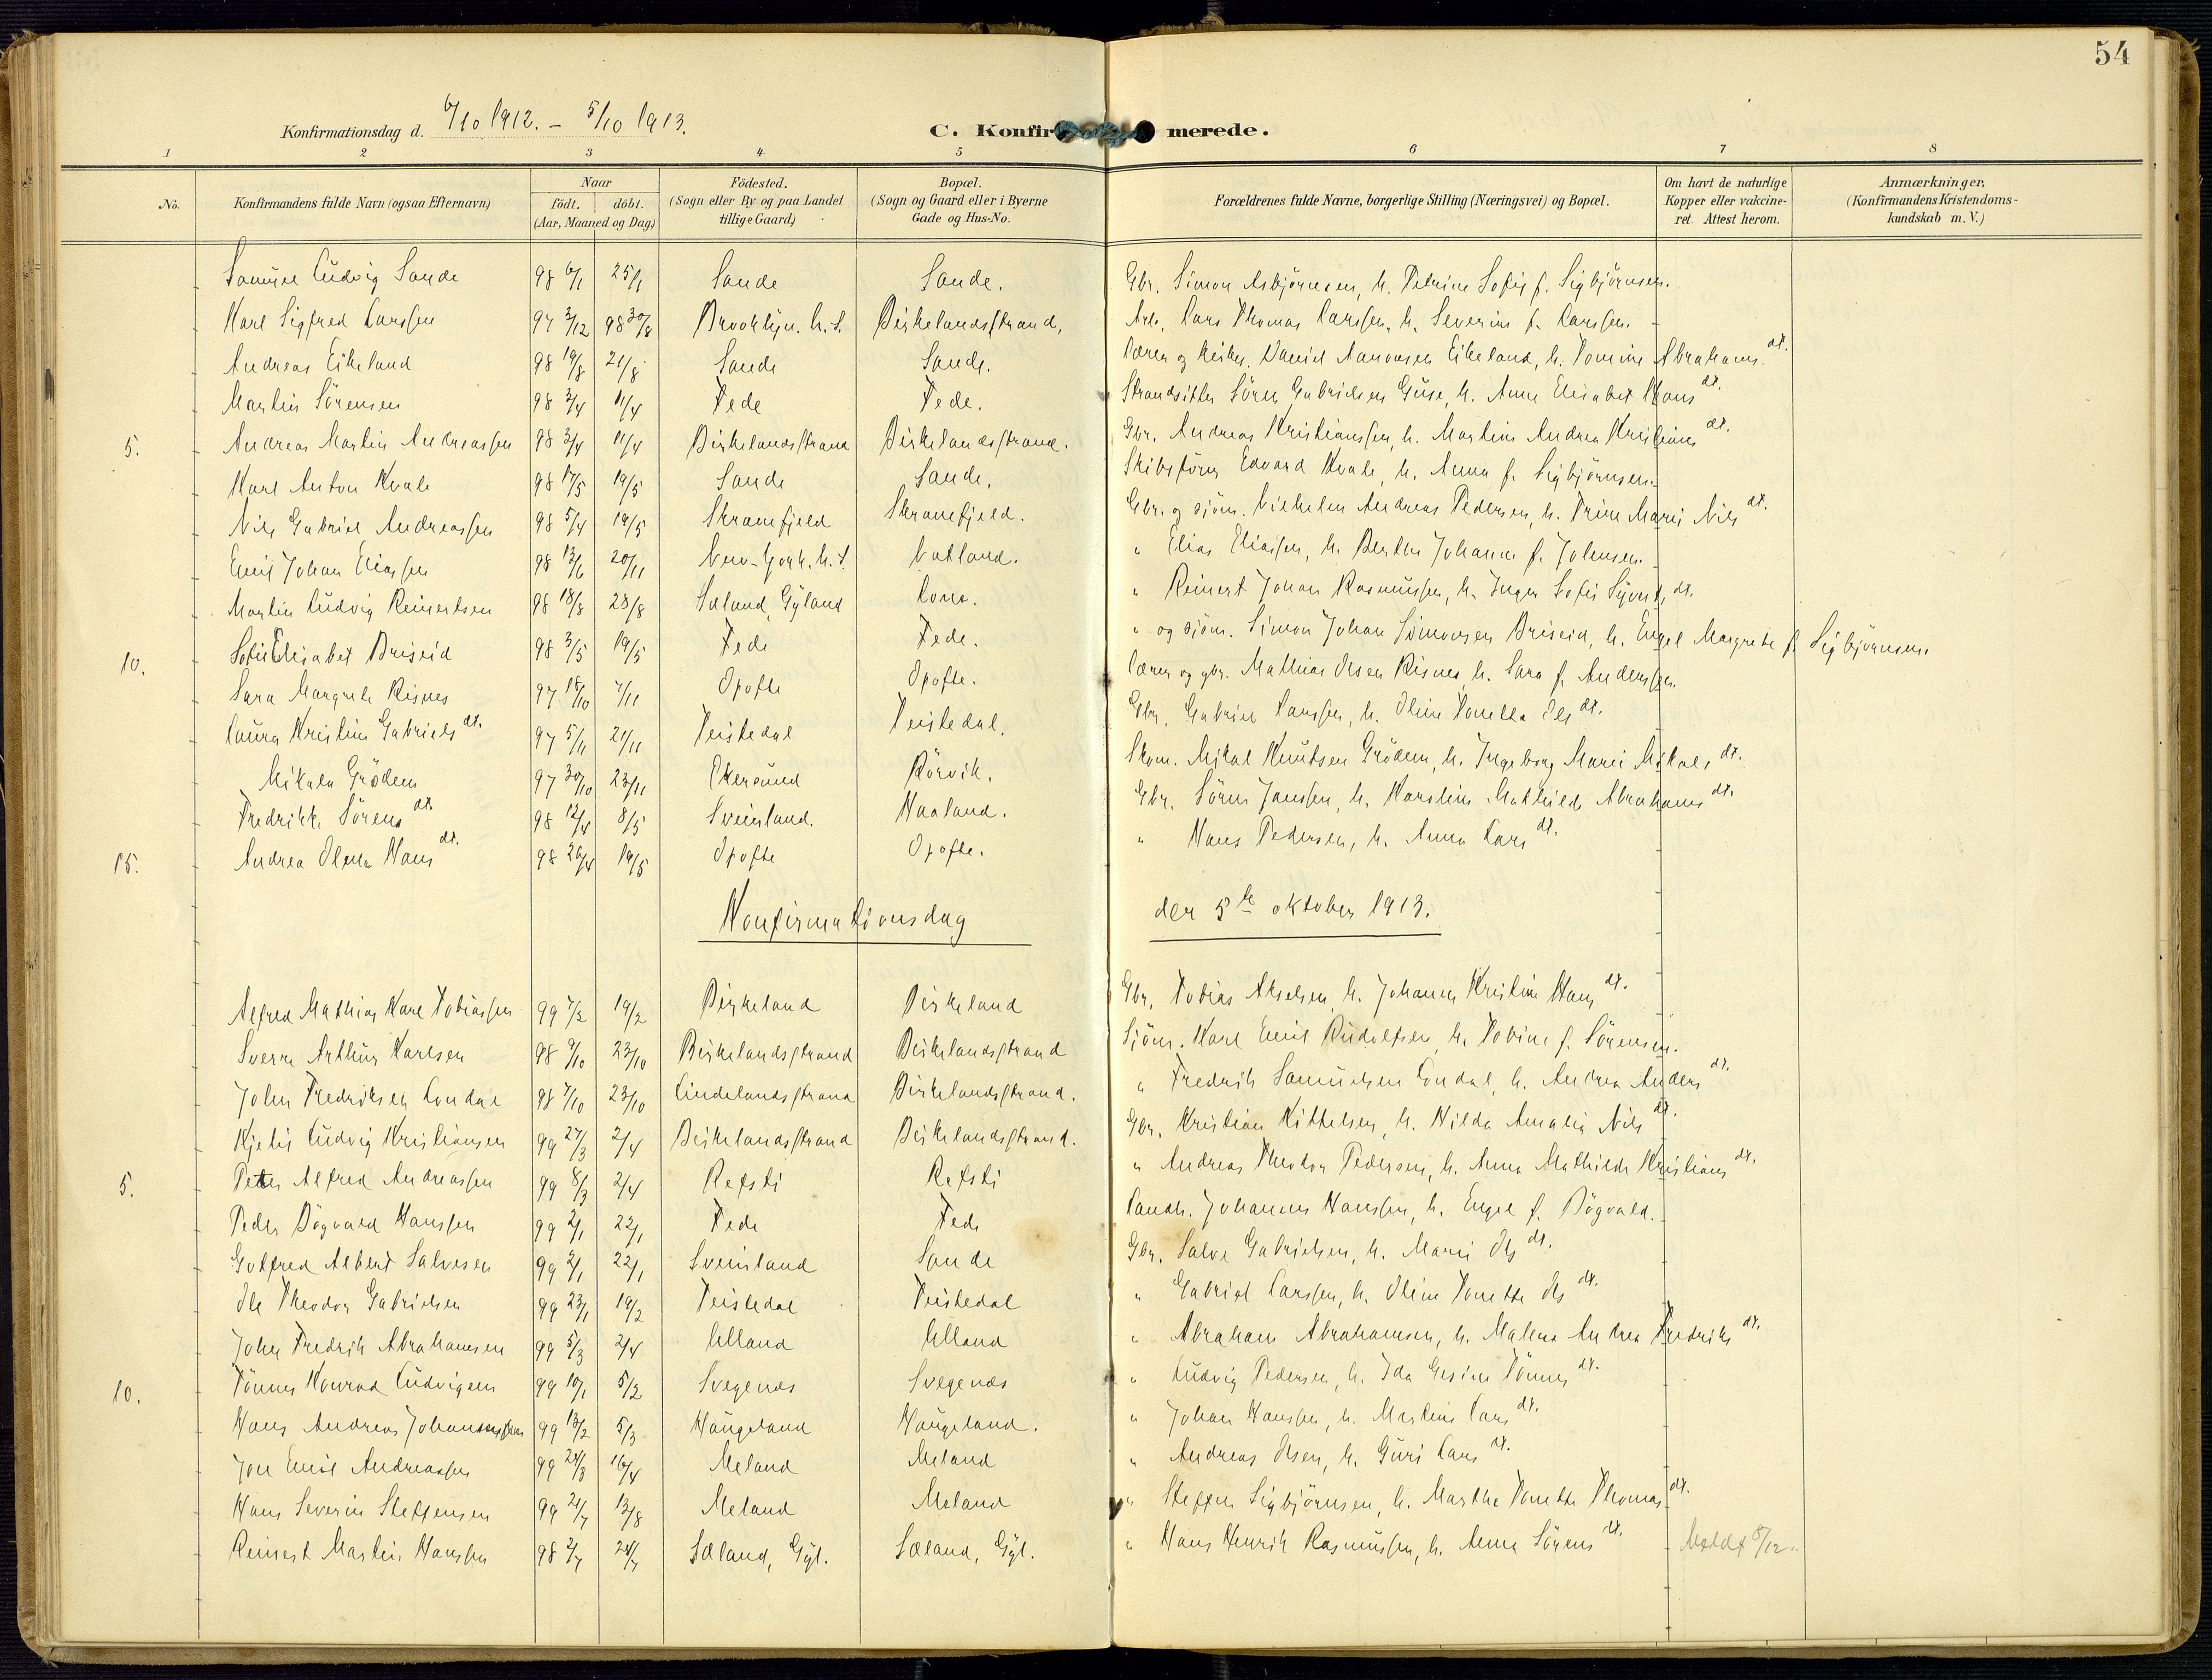 54
Konfirmationsdag d. 6/10 1912. – 5/10 1913.
C. Konfirmerede.
1 2 3 4 5 6 7 8
No. Konfirmandens fulde Navn (ogsaa Efternavn) Naar födt. döbt. (Aar, Maaned og Dag) Födested. (Sogn eller By og paa Landet tillige Gaard) Bopæl. (Sogn og Gaard eller i Byerne Gade og Hus-No. Forældrenes fulde Navne, borgerlige Stilling (Næringsvei) og Bopæl. Om havt de naturlige Kopper eller vakcineret. Attest herom. Anmærkninger. (Konfirmandens Kristendomskundskab m. V.)
Samuel Ludvig Sande 98 6/1 25/1 Sande Sande. Gbr. Simon Asbjörnsen, h. Petrine Sofie f. Sigbjörnsen.
Karl Sigfred Larssen 97 2/12 98 30/8 Brooklyn. U.S. Birkelandsstrand, Arb. Lars Thomas Larssen, h. Severine f. Larssen.
Andreas Eikeland 98 19/8 21/8 Sande Sande. Lærer og kirkes. Daniel Aanonsen Eikeland, h. Tomine Abrahams dt.
Martin Sörensen 98 2/4 11/4 Fede Fede. Strandsitter Sören Gabrielsen Guse, h. Anne Elisabet Hans dt.
5. Andreas Martin Andreassen 98 3/4 11/4 Birkelandsstrand Birkelandsstrand. Gbr. Andreas Kristianssen, h. Martine Andrea Kristians dt.
Karl Anton Kvale 98 17/5 19/5 Sande Sande. Skibsförer Edvard Kvale, h. Anna f. Sigbjörnsen.
Nils Gabriel Andreassen 98 5/4 19/5 Skranefjeld Skranefjeld. Gbr. og sjöm. Vilhelm Andreas Pedersen, h. Trine Marie Nils dt.
Emil Johan Eliassen 98 13/6 20/11 New-York. U.S. Natland. " Elias Eliassen, h. Berthe Johanne f. Johnsen.
Martin Ludvig Reinertsen 98 18/8 28/8 Sæland, Gyland Lone. " Reinert Johan Rasmussen, h. Inger Sofie Syverts dt.
10. Sofie Elisabet Briseid 98 3/5 19/5 Fede Fede. " og sjöm. Simon Johan Simonsen Briseid, h. Engel Margrete f. Sigbjörnsen.
Sara Margrete Risnes 97 18/10 7/11 Opofte Opofte. Lærer og gbr. Mathias Olsen Risnes, h. Sara f. Anderssen.
Laura Kristine Gabriels dt. 97 5/11 21/11 Teistedal Teistedal. Gbr. Gabriel Larssen, h. Oline Tonette Ols dt.
Mikala Grödem 97 30/10 23/11 Ekersund Rörvik. Skom. Mikal Knutsen Grödem, h. Ingeborg Marie Mikals dt.
Fredrikke Sörens dt. 98 12/4 8/5 Sveinland. Haaland. Gbr. Sören Janssen, h. Karstine Mathilde Abrahams dt.
15. Andrea Olena Hans dt. 98 26/4 19/5 Opofte Opofte. " Hans Pedersen, h. Anna Lars dt.
Konfirmationsdag den 5te oktober 1913.
Alfred Mathias Karl Tobiassen 99 7/2 19/2 Birkeland Birkeland Gbr. Tobias Akselsen, h. Johanne Kristine Hans dt.
Sverre Arthur Karlsen 98 9/10 23/10 Birkelandsstrand Birkelandsstrand Sjöm. Karl Emil Rudolfsen, h. Tobine f. Sörensen.
John Fredriksen Londal 98 7/10 23/10 Lindelandsstrand Birkelandsstrand. " Fredrik Samuelsen Londal, h. Andrea Anders dt.
Kjetil Ludvig Kristiansen 99 27/3 2/4 Birkelandsstrand Birkelandsstrand. Gbr. Kristian Kittelsen, h. Hilda Amalia Nils dt.
5. Peter Alfred Andreassen 99 8/3 2/4 Refsti Refsti " Andreas Theodor Pedersen, h. Anna Mathilde Kristians dt.
Peder Bögvald Hanssen 99 2/1 22/1 Fede Fede Landh. Johannes Hanssen, h. Engel f. Bögvald.
Gotfred Albert Salvesen 99 2/1 22/1 Sveinland Sande Gbr. Salve Gabrielsen, h. Marie Ols dt.
Ole Theodor Gabrielsen 99 23/1 19/2 Teistedal Teistedal " Gabriel Larssen, h. Oline Tonette Ols dt.
John Fredrik Abrahamsen 99 5/3 2/4 Ulland Ulland " Abraham Abrahamsen, h. Malena Andrea Fredriks dt.
10. Tönnes Konrad Ludvigsen 99 10/1 5/2 Svegenæs Svegenæs " Ludvig Pedersen, h. Ida Gesine Tönnes dt.
Hans Andreas Johannssen 99 13/2 5/3 Haugeland Haugeland. " Johan Hanssen, h. Martine Lars dt.
Jon Emil Andreassen 99 24/3 16/4 Meland Meland " Andreas Olsen, h. Guri Lars dt.
Hans Severin Steffensen 99 21/7 13/8 Meland Meland " Steffen Sigbjörnsen, h. Marthe Tonette Thomas dt.
Reinert Martin Hanssen 98 2/7 24/7 Sæland, Gyl. Sæland, Gyl. " Hans Henrik Rasmussen, h. Anna Sörens dt. Meldt 8/12